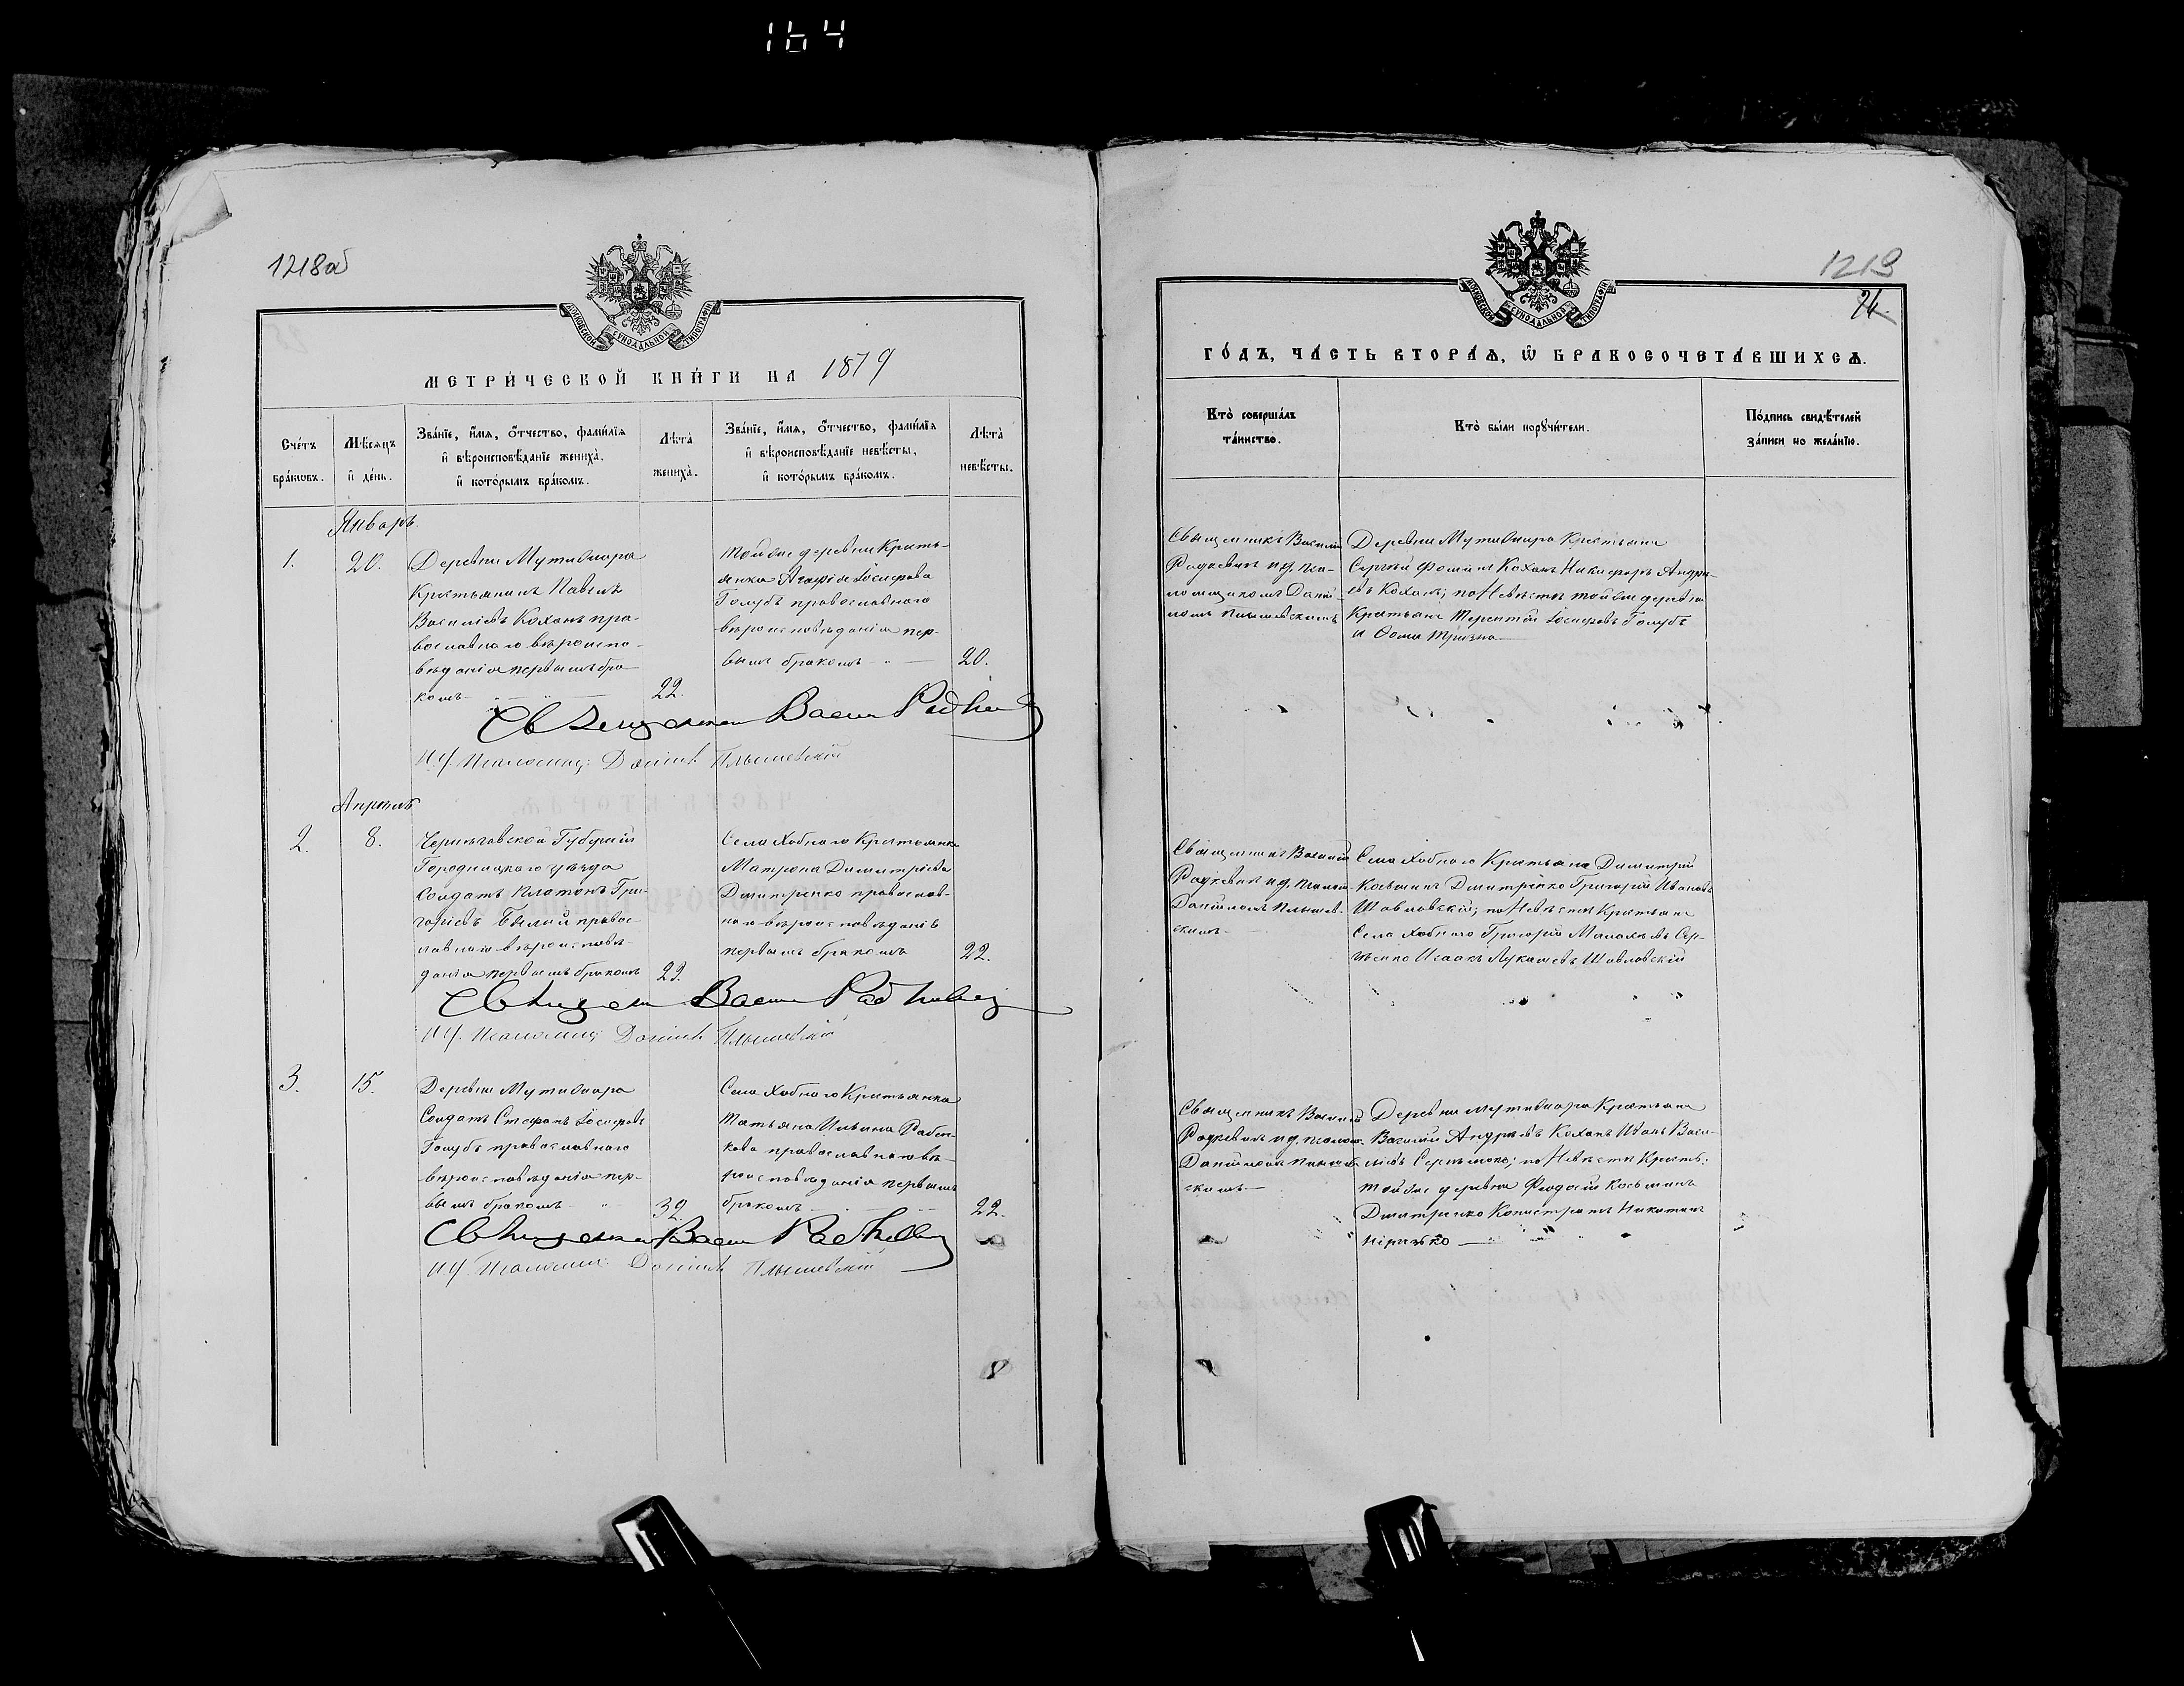 164
1218об
МОСКОВСКОЙ СѴНОДАЛЬНОЙ ТИПОГРАФІИ
МЕТРИ́ЧЕСКОЙ КНИ́ГИ НА 1879
Сче́тъ бра́кωвъ.
Мѣ́сяцъ и҆ де́нь.
Зва́нїе, и҆́мѧ, ѻ҆́тчество, фами́лїѧ
и҆ вѣроисповѣ́данїе жениха̀,
и҆ кото́рымъ бра́комъ.
Лѣта̀ жениха̀.
Зва́нїе, и҆́мѧ, ѻ҆́тчество, фами́лїѧ
и҆ вѣроисповѣ́данїе невѣ́сты,
и҆ кото́рымъ бра́комъ.
Лѣта̀ невѣ́сты.
Январь.
1.
20.
Деревни Мутивиара
Крестьянинъ Павелъ
Василіевъ Коханъ пра-
вославнаго вѣроиспо-
вѣданія первымъ бра-
комъ
22.
Той же деревни Кресть-
янка Агафія Іосифова
Голубъ православнаго
вѣроисповѣданія пер-
вымъ бракомъ
20.
Священникъ Васи Радкеви
И. д. Псаломщ: Даніилъ Плышевскій
Апрѣль
2.
8.
Черниговской Губерніи
Городницкаго уѣзда
Солдатъ Платонъ Гри-
горіевъ Бѣлый правос-
лавнаго вѣроисповѣ-
данія первымъ бракомъ
22.
Села Хобнаго Крестьянка
Матрона Димитріева
Димитренко православ-
наго вѣроисповѣданія
первымъ бракомъ
22.
Священн Васи Радкевич
И. д. Псаломщ: Даніилъ Плышевскій
3.
15.
Деревни Мутивиара
Солдатъ Стефанъ Іосифовъ
Голубъ православнаго
вѣроисповѣданія пер-
вымъ бракомъ
32.
Села Хобнаго Крестьянка
Татьяна Ильина Рабен-
кова православнаго вѣ-
роисповѣданія первымъ
бракомъ
22.
Священник Васи Радкевич
И. д. Псаломщ: Даніилъ Плышевскій
1219
МОСКОВСКОЙ СѴНОДАЛЬНОЙ ТИПОГРАФІИ
ГО́ДЪ, ЧА́СТЬ ВТОРА́Ѧ, Ѽ БРАКОСОЧЕТА́ВШИХСѦ.
Кто̀ соверша́лъ та́инство.
Кто̀ бы́ли порꙋчи́тели.
По́дпись свидѣ́телей за́писи по жела́нїю.
Священникъ Василій
Радкевичъ и. д. пса-
ломщикомъ Дані-
иломъ Плышевскимъ
Деревни Мутивиара Крестьяне
Сергѣй Фоминъ Коханъ Никифоръ Андре-
евъ Коханъ; по Невѣстѣ той же деревни
Крестьяне Терентій Іосифовъ Голубъ
и Фома Тризна
Священникъ Василій
Радкевичъ и. д. псалом.
Даніиломъ Плышев-
скимъ
Села Хобнаго Крестьяне Димитрій
Косьминъ Димитренко Григорій Ивановъ
Шавловскій; по Невѣстѣ Крестьяне
Села Хобнаго Григорій Малахіевъ Сер-
гѣенко Исаакъ Лукашевъ Шавловскій
Священникъ Василій
Радкевичъ и. д. псалом.
Даніиломъ Плышев-
скимъ
Деревни Мутивиара Крестьяне
Василій Андреевъ Коханъ Иванъ Васи-
ліевъ Сергѣенко; по Невѣстѣ Кресть.
той же деревни Феодосій Косьминъ
Димитренко Калистратъ Никитинъ